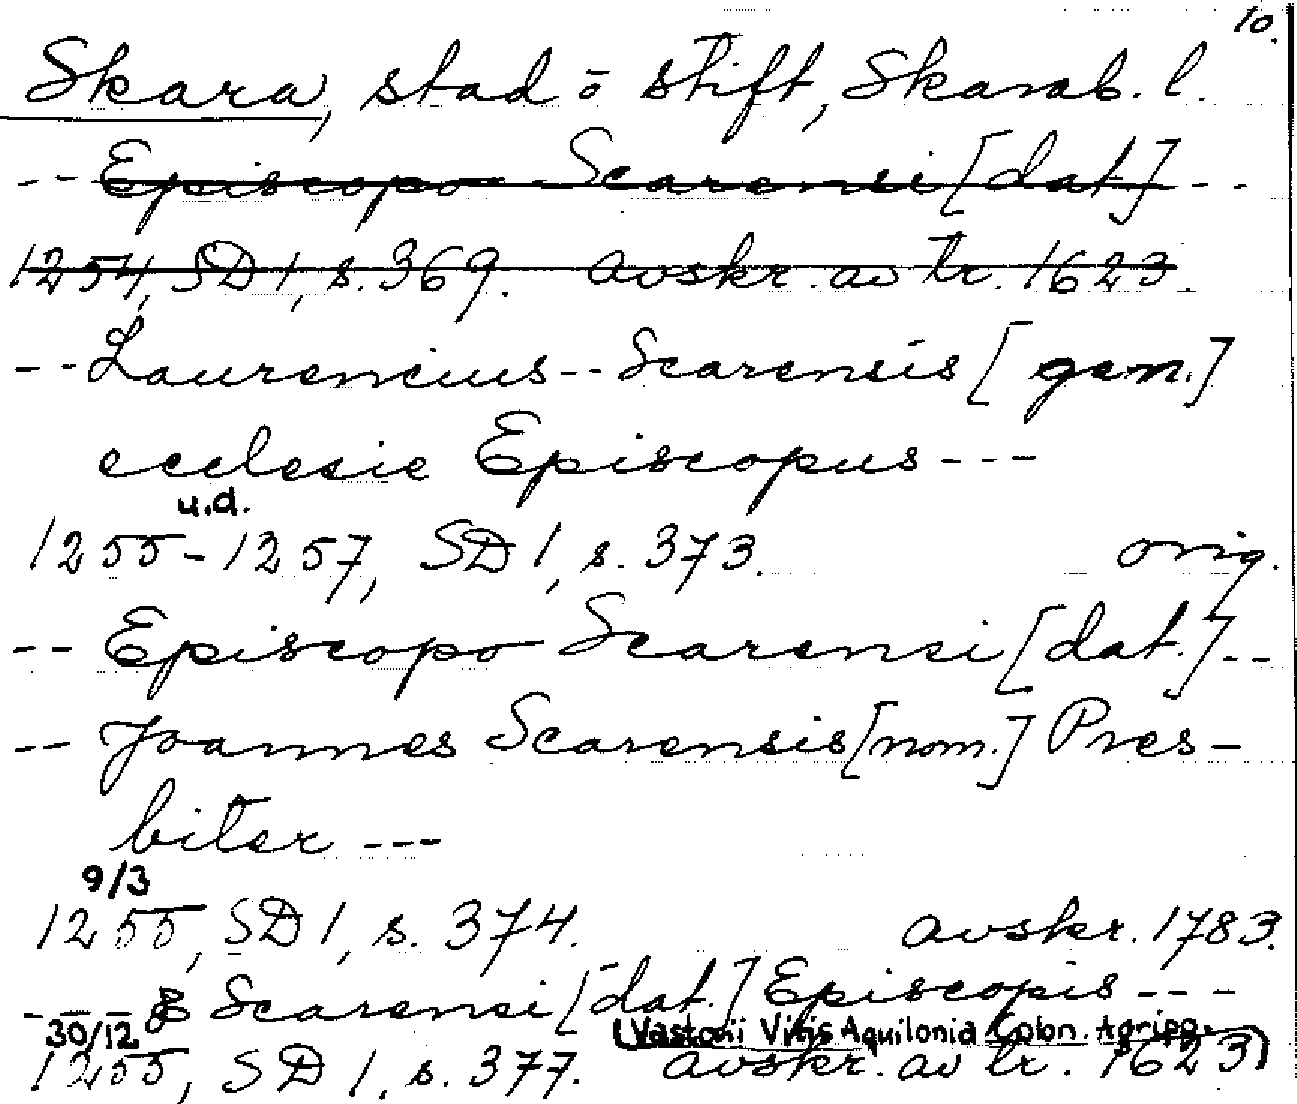 10.
Skara, stad o stift, Skarab. l.
-- Episcopo Scarensi [dat.] --
1254, SD 1, s. 369. avskr. av tr. 1623.
-- Laurencius -- Scarensis [gen.]
ecclesie Episcopus ---
u.d.
1255-1257, SD 1, s. 373. orig.
-- Episcopo Scarensi [dat.] --
-- Joannes Scarensis [nom.] Pres-
biter ---
9/3
1255, SD 1, s. 374. avskr. 1783.
--- Scarensi [dat.] Episcopis ---
30/12 (Vastovii Vitis Aquilonia Colon. Agripp.
1255, SD 1, s. 377. avskr. av tr. 1623)